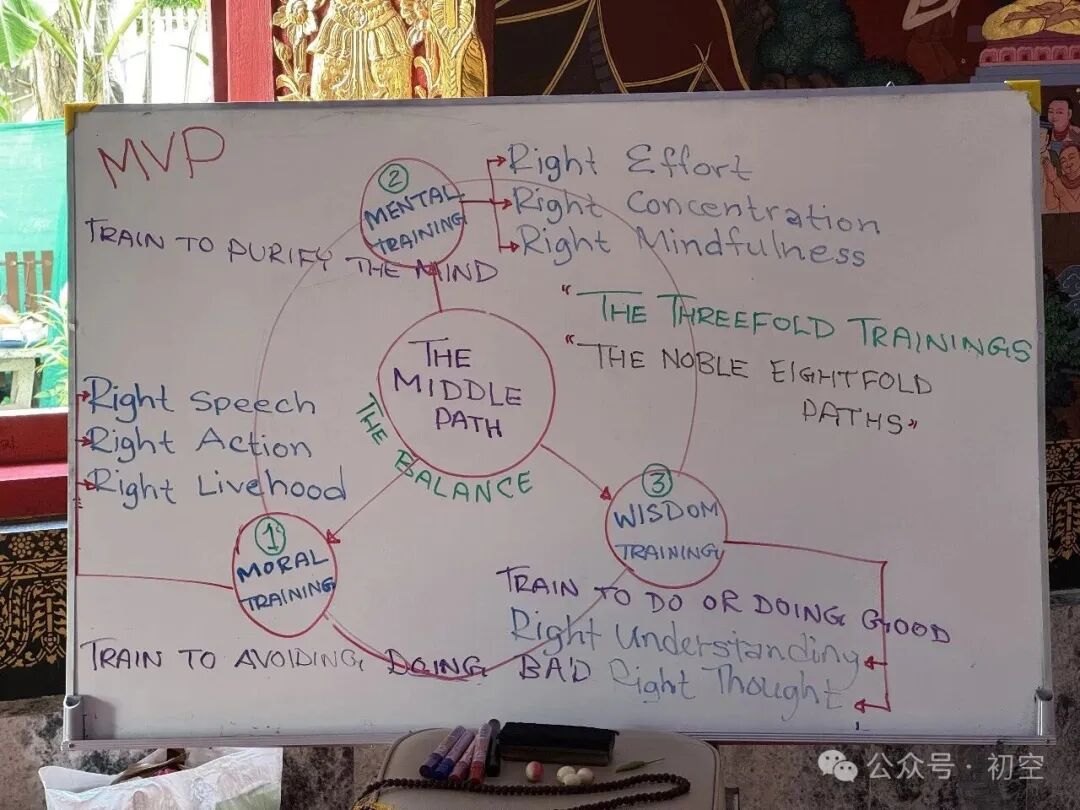 MVP
②
MENTAL
TRAINING
Right Effort
Right Concentration
Right Mindfulness
TRAIN TO PURIFY THE MIND
"THE THREEFOLD TRAININGS
"THE NOBLE EIGHTFOLD
PATHS"
THE
MIDDLE
PATH
THE BALANCE
Right Speech
Right Action
Right Livehood
①
MORAL
TRAINING
③
WISDOM
TRAINING
TRAIN TO DO OR DOING GOOD
Right Understanding
Right Thought
TRAIN TO AVOIDING DOING BAD
公众号·初空